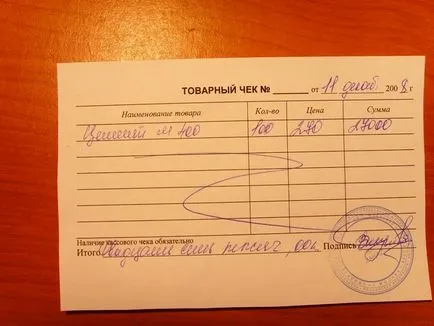 ТОВАРНЫЙ ЧЕК № ________ от 11 декаб. 2008 г
Наименование товара Кол-во Цена Сумма
Цемент М 400 100 270 27000
Наличие кассового чека обязательно
Итого Двадцать семь тысяч, 00к. Подпись